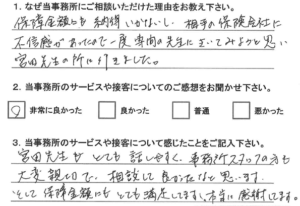 1. なぜ当事務所にご相談いただけた理由をお教え下さい。
保障金額にも納得いかないし、相手の保険会社に
不信感があったので一度専門の先生にきいてみようと思い
宮田先生の所に行きました。
2. 当事務所のサービスや接客についてのご感想をお聞かせ下さい。
非常に良かった 良かった 普通 悪かった
3. 当事務所のサービスや接客について感じたことをご記入下さい。
宮田先生がとても話しやすく、事務所スタッフの方も
大変親切で、相談して良かったなと思います。
そして保障金額にもとても満足してます。本当に感謝してます。